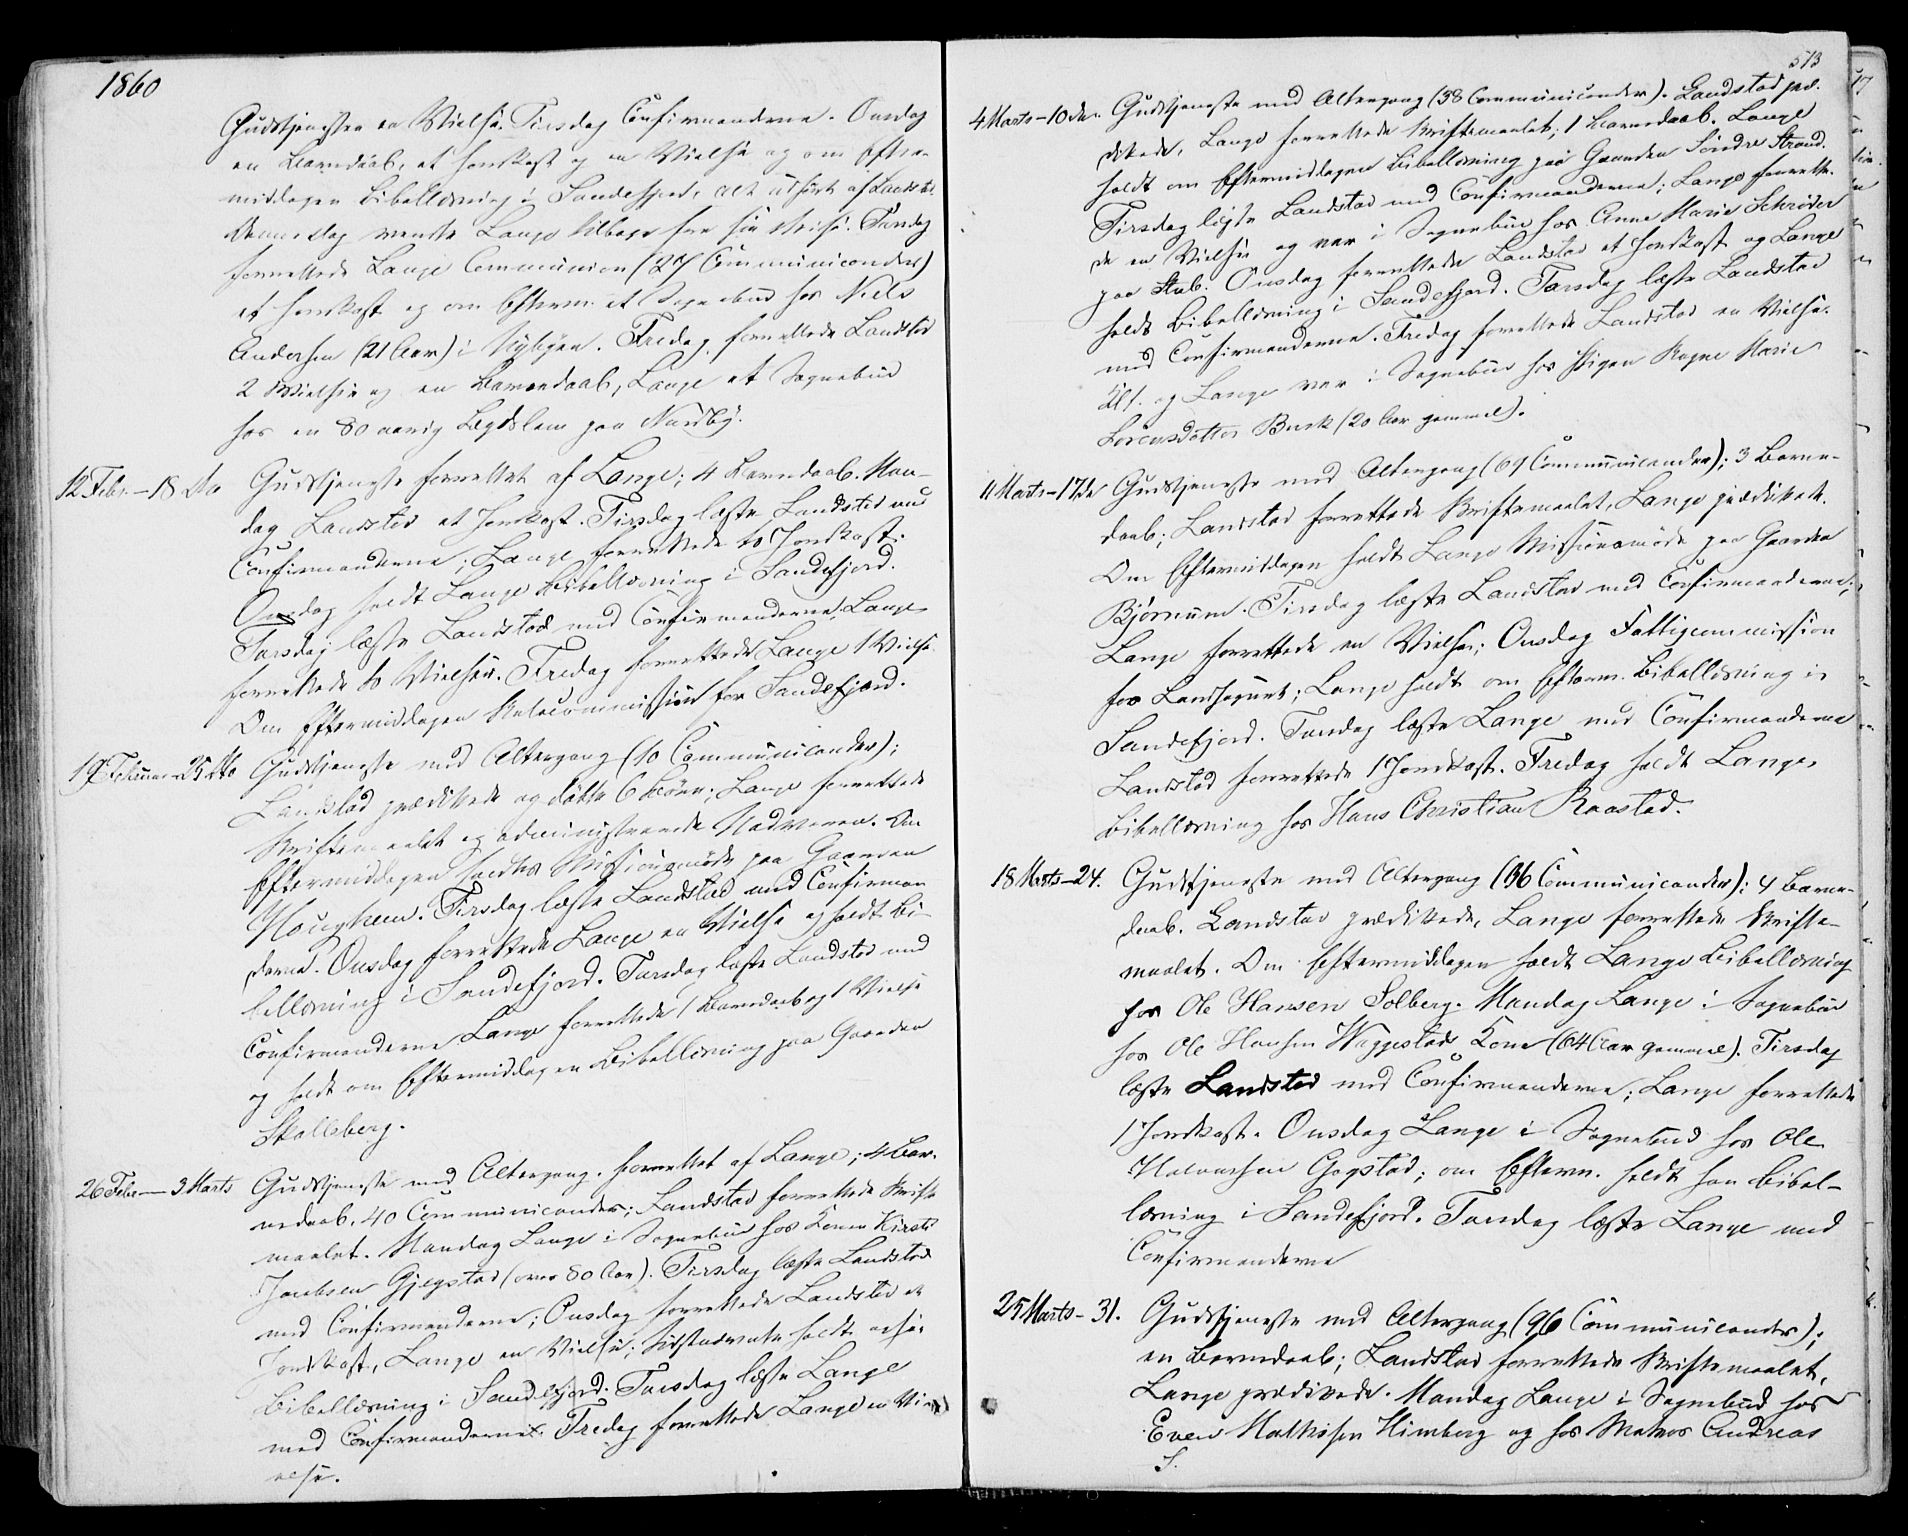 1860
Gudstjenesten en Vielse. Tirsdag Confirmanderne. Onsdag
en Barnedaab, et Jordkast og en Vielse og om Efter-
middagen Bibellæsning i Sandefjord, alt udført af Landstad.
Samme dag vendte Lange tilbage fra sin Reise. Torsdag
forrettede Lange Communion (27 Communicander)
et Jordkast og om Efterm. et Sognebud hos Niels
Andersen (21 Aar) i Nybyen. Fredag forrettede Landstad
2 Vielser og en Barnedaab, Lange et Sognebud
hos en 80 aarig Lægdslem paa Nordby.
12 Febr. – 18 do Gudstjeneste forrettet af Lange; 4 Barnedaab. Man-
dag Landstad et Jordkast. Tirsdag læste Landstad med
Confirmanderne; Lange forrettede to Jordkast.
Onsdag holdt Lange Bibellæsning i Sandefjord.
Torsdag læste Landstad med Confirmanderne, Lange
forrettede to Vielser. Fredag forrettede Lange 1 Vielse.
Om Eftermiddagen Skolecommission for Sandefjord.
19 Februar – 25 do Gudstjeneste med Altergang (10 Communicander);
Landstad prædikede og døbte 6 Børn; Lange forrettede
Skriftemaalet og administrerede Nadveren. Om
Eftermiddagen holdtes Missionsmøde paa Gaarden
Hougheim. Tirsdag læste Landstad med Confirman
derne. Onsdag forrettede Lange en Vielse og holdt Bi-
bellæsning i Sandefjord. Torsdag læste Landstad med
Confirmanderne Lange forrettede 1 Barnedaab og 1 Vielse
og holdt om Eftermiddagen Bibellæsning paa Gaarden
Skallsberg.
26 Febr – 3 Marts Gudstjeneste med Altergang. forrettet af Lange; 4 Bar-
nedaab. 40 Communicander; Landstad forrettede Skrifte
maalet. Mandag Lange i Sognebud hos Konen Kirsti
Jacobsen Gjegstad (over 80 Aar). Tirsdag læste Landstad
med Confirmanderne; Onsdag forrettede Landstad et
Jordkast, Lange en Vielse; Sidstnævnte holdt ogsaa
Bibellæsning i Sandefjord. Torsdag læste Lange
med Confirmanderne. Fredag forrettede Lange en Vi-
else.
513
4 Marts – 10 de. Gudstjeneste med Altergang (38 Communicander). Landstad præ-
dikede, Lange forrettede Skriftemaalet; 1 Barnedaab. Lange
holdt om Eftermiddagen Bibellæsning paa Gaarden Søndre Strand.
Tirsdag læste Landstad med Confirmanderne; Lange forrette-
de en Vielse og var i Sognebud hos Anne Marie Schrøder
paa Stub. Onsdag forrettede Landstad et Jordkast og Lange
holdt Bibellæsning i Sandefjord. Torsdag læste Landstad
med Confirmanderne. Fredag forrettede Landstad en Vielse.
og Lange var i Sognebud hos Pigen Ragne Marie
Lorensdatter Busk (20 Aar gammel).
11 Marts – 17de Gudstjeneste med Altergang (69 Communicander); 3 Barne-
daab; Landstad forrettede Skriftemaalet, Lange prædikede.
Om Eftermiddagen holdt Lange Missionsmøde paa Gaarden
Bjørnum. Tirsdag læste Landstad med Confirmanderne;
Lange forrettede en Vielse; Onsdag Fattigcommission
for Landsognet; Lange holdt om Efterm. Bibellæsning i
Sandefjord. Torsdag læste Lange med Confirmanderne
Landstad forrettede 1 Jordkast. Fredag holdt Lange
Bibellæsning hos Hans Christian Raastad.
18 Marts – 24. Gudstjeneste med Altergang (36 Communicander); 4 Barne-
daab. Landstad prædikede, Lange forrettede Skrifte-
maalet. Om Eftermiddagen holdt Lange Bibellæsning
hos Ole Hansen Solberg. Mandag Lange i Sognebud
hos Ole Hansen Wæggestads Kone (64 Aar gammel). Tirsdag
læste Landstad med Confirmanderne; Lange forrettede
1 Jordkast. Onsdag Lange i Sognebud hos Ole
Halvorsen Gogstad; om Efterm. holdt han Bibel-
læsning i Sandefjord. Torsdag læste Lange med
Confirmanderne
25 Marts – 31. Gudstjeneste med Altergang (96 Communicander);
en Barnedaab; Landstad forrettede Skriftemaalet,
Lange prædikede. Mandag Lange i Sognebud hos
Even Mathisen Himberg og hos Matros Andreas
S.